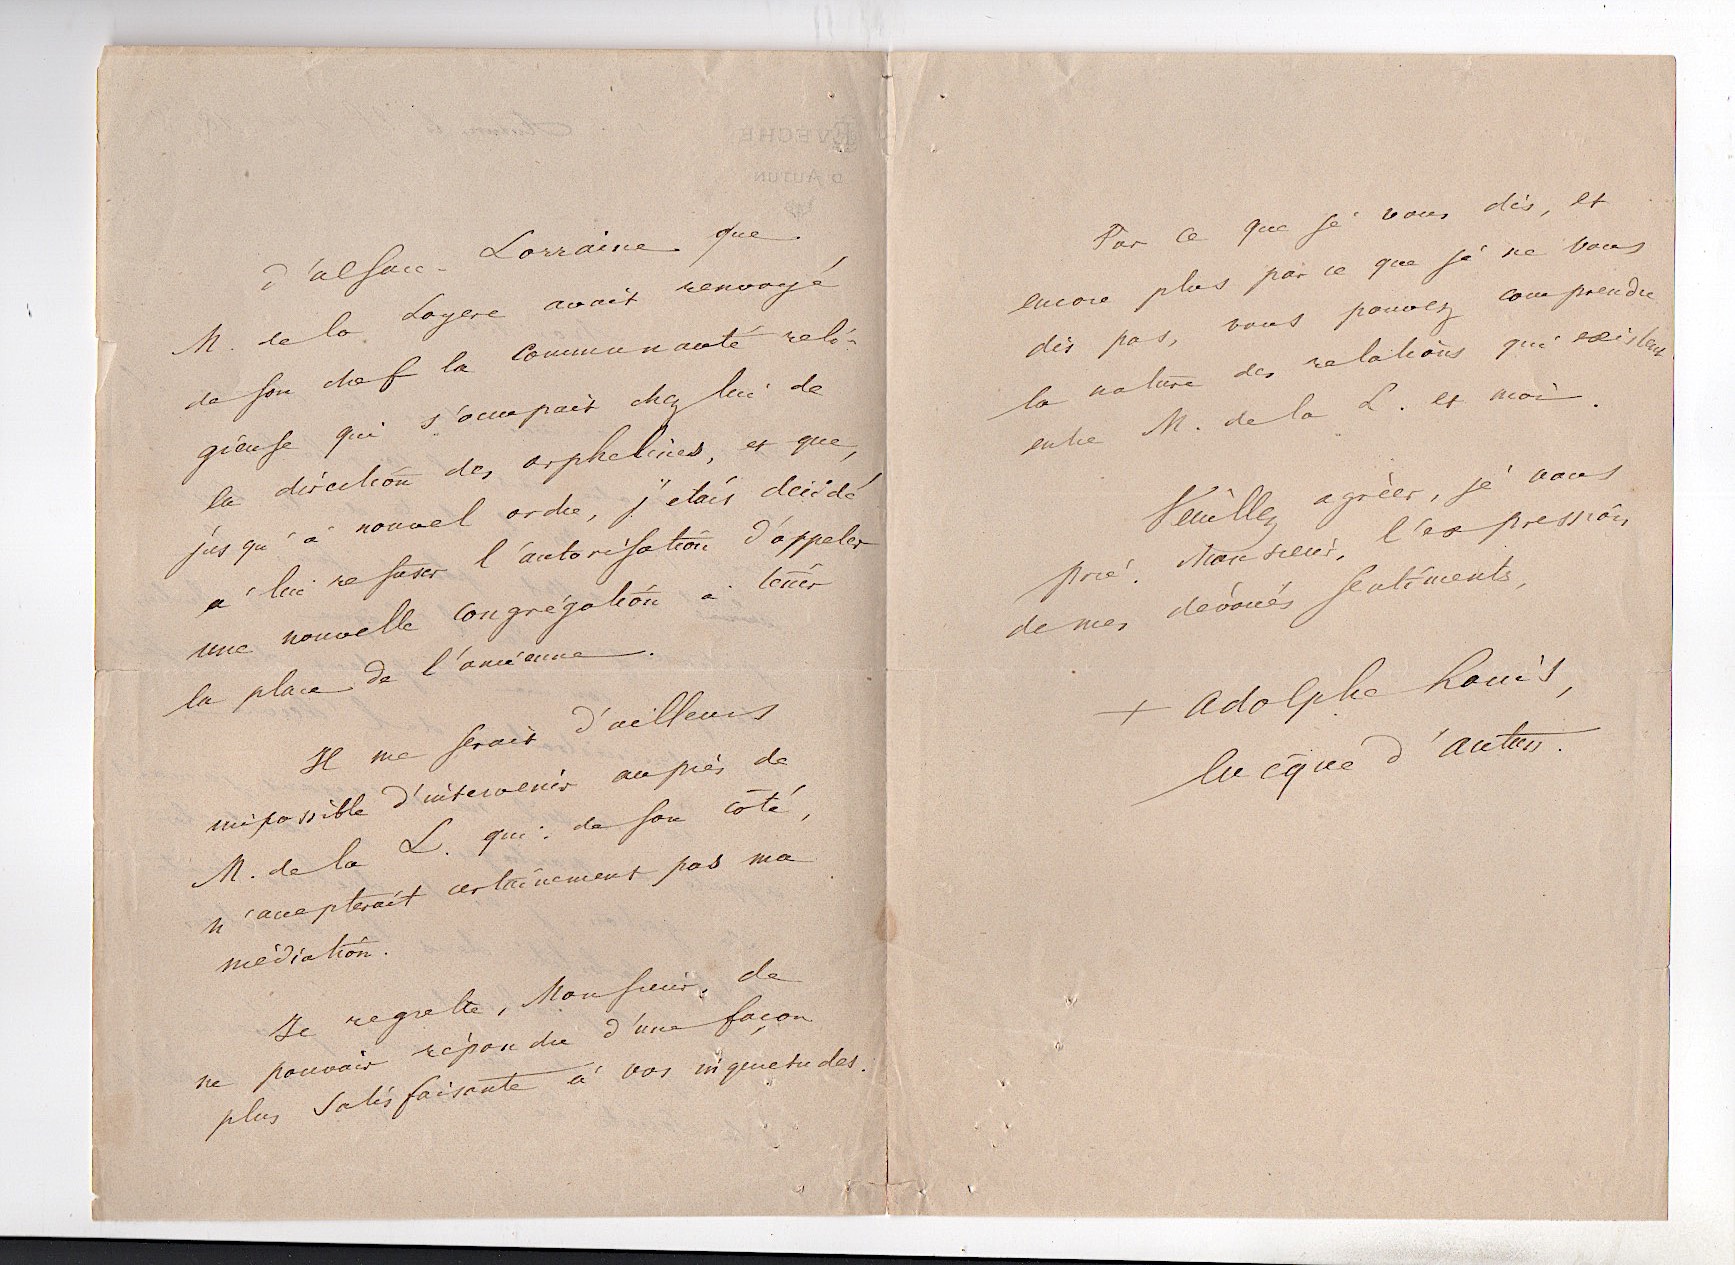 d'alsace-Lorraine que
M. de la Loyere avait renvoyé
de son chef la communauté reli-
gieuse qui s'occupait chez lui de
la direction des orphelines, et que,
jusqu'à nouvel ordre, j'étais décidé
à lui refuser l'autorisation d'appeler
une nouvelle congrégation à tenir
la place de l'ancienne.
Il me serait d'ailleurs
impossible d'intervenir auprès de
M. de la L. qui, de son côté,
n'accepterait certainement pas ma
médiation.
Je regrette, Monsieur, de
ne pouvoir répondre d'une façon
plus satisfaisante à vos inquietudes.
Par ce que je vous dis, et
encore plus par ce que je ne vous
dis pas, vous pouvez comprendre
la nature des relations qui existent
entre M. de la L. et moi.
Veuillez agréer, je vous
prie, Monsieur, l'expression
de mes dévoués sentiments,
+ Adolphe Louis,
évêque d'autun.
EVECHÉ
D'AUTUN